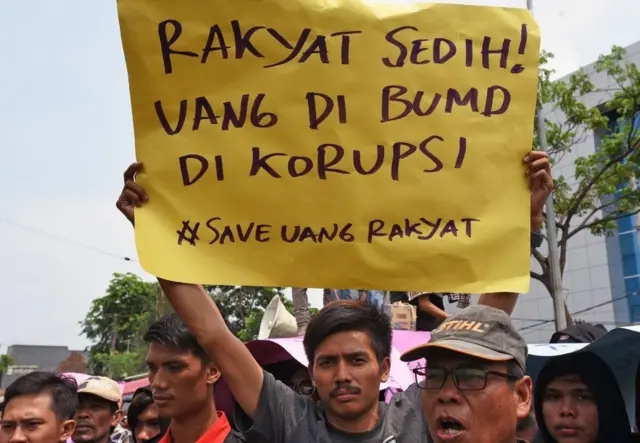 RAKYAT SEDIH!
UANG DI BUMD
DI KORUPSI
#SAVE UANG RAKYAT
STIHL